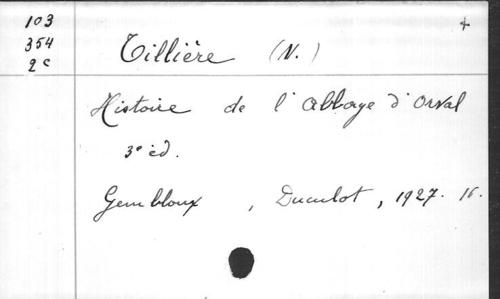 103
354
2 c
Tillière (N.)
Histoire de l'abbaye d'Orval
3e éd.
Gembloux, Duculot, 1927. 16.